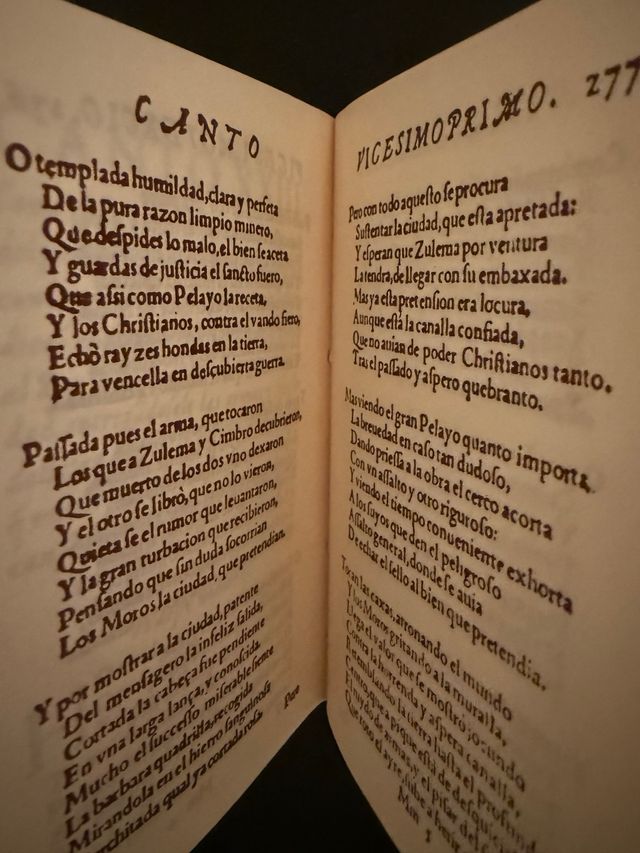 CANTO
O templada humildad, clara y perfeta
De la pura razon limpio minero,
Que despides lo malo, el bien se aceta
Y guardas de justicia el sancto fuero,
Que assi como Pelayo la receta,
Y los Christianos, contra el vando fiero,
Echò rayzes hondas en la tierra,
Para vencella en descubierta guerra.
Passada pues el arma, que tocaron
Los que a Zulema y Cimbro decubrieron,
Que muerto de los dos vno dexaron
Y el otro se librò, que no lo vieron,
Quieta se el rumor que leuantaron,
Y la gran turbacion que recibieron,
Pensando que sin duda socorrian
Los Moros la ciudad, que pretendian.
Y por mostrar a la ciudad, patente
Del mensagero la infeliz salida,
Cortada la cabeça fue pendiente
En vna larga lança, y conoscida.
Mucho el successo miserable siente
La barbara quadrilla, recogida
Mirandola en el hierro sanguinosa
marchitada qual ya cortada rosa.
Pero
VICESIMOPRIMO. 277
Pero con todo aquesto se procura
Sustentar la ciudad, que esta apretada:
Y esperan que Zulema por ventura
La tendra, de llegar con su embaxada.
Mas ya esta pretension era locura,
Aunque està la canalla confiada,
Que no auian de poder Christianos tanto.
Tras el passado y aspero quebranto.
Mas viendo el gran Pelayo quanto importa
La breuedad en caso tan dudoso,
Dando priessa a la obra el cerco acorta
Con vn assalto y otro riguroso:
Y viendo el tiempo conueniente exhorta
A los suyos que den el peligroso
Assalto general, donde se auia
De echar el sello al bien que pretendia.
Tocan las caxas, atronando el mundo
Y los Moros gritando a la muralla,
Llega el valor que se mostrò jocundo
Contra la horrenda y aspera canalla,
Retemblando la tierra hasta el profundo
Centro, que a pique està de desquicialla
El ruydo de armas, y el pisar del
Que
Mm 1